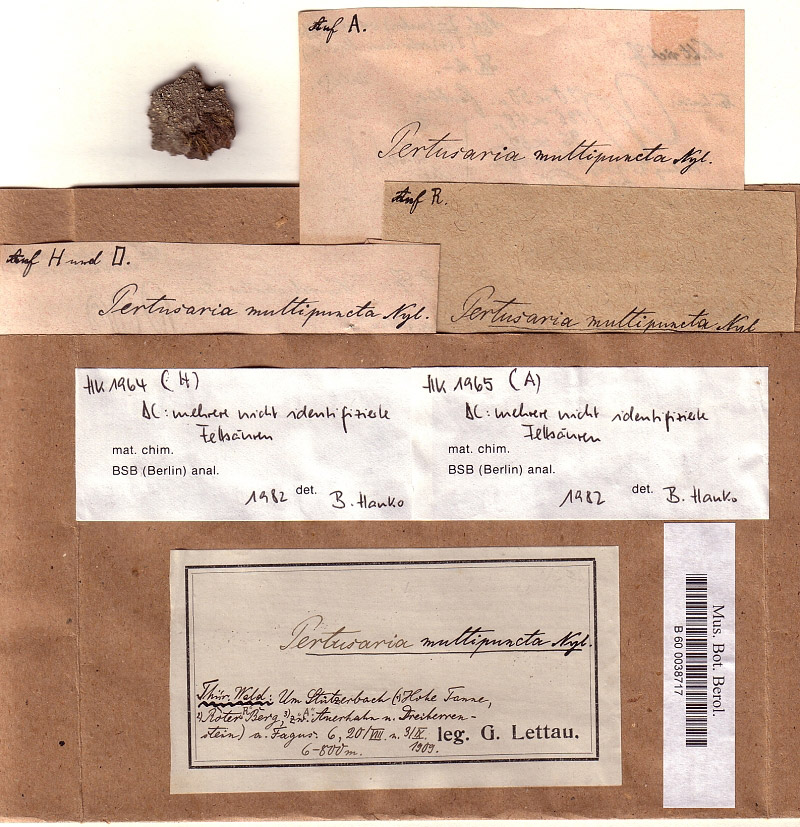 Auf A.
Pertusaria multipuncta Nyl.
Auf R.
Pertusaria multipuncta Nyl
Auf H und D.
Pertusaria multipuncta Nyl.
HK 1964 (H)
DC: mehrere nicht identifizierte
Fettsäuren
mat. chim.
BSB (Berlin) anal.
1982 det. B. Hanko
HK 1965 (A)
DC: mehrere nicht identifizierte
Fettsäuren
mat. chim.
BSB (Berlin) anal.
1982 det. B. Hanko
Pertusaria multipuncta Nyl.
Thür. Wald: Um Stützerbach (Hohe Tanne,
Roter Berg, zw. Auerhahn u. Dreiherren-
stein) a. Fagus. 6, 20/VIII u. 3/IX.
6-800m. 1909.
leg. G. Lettau.
Mus. Bot. Berol.
B 60 0038717